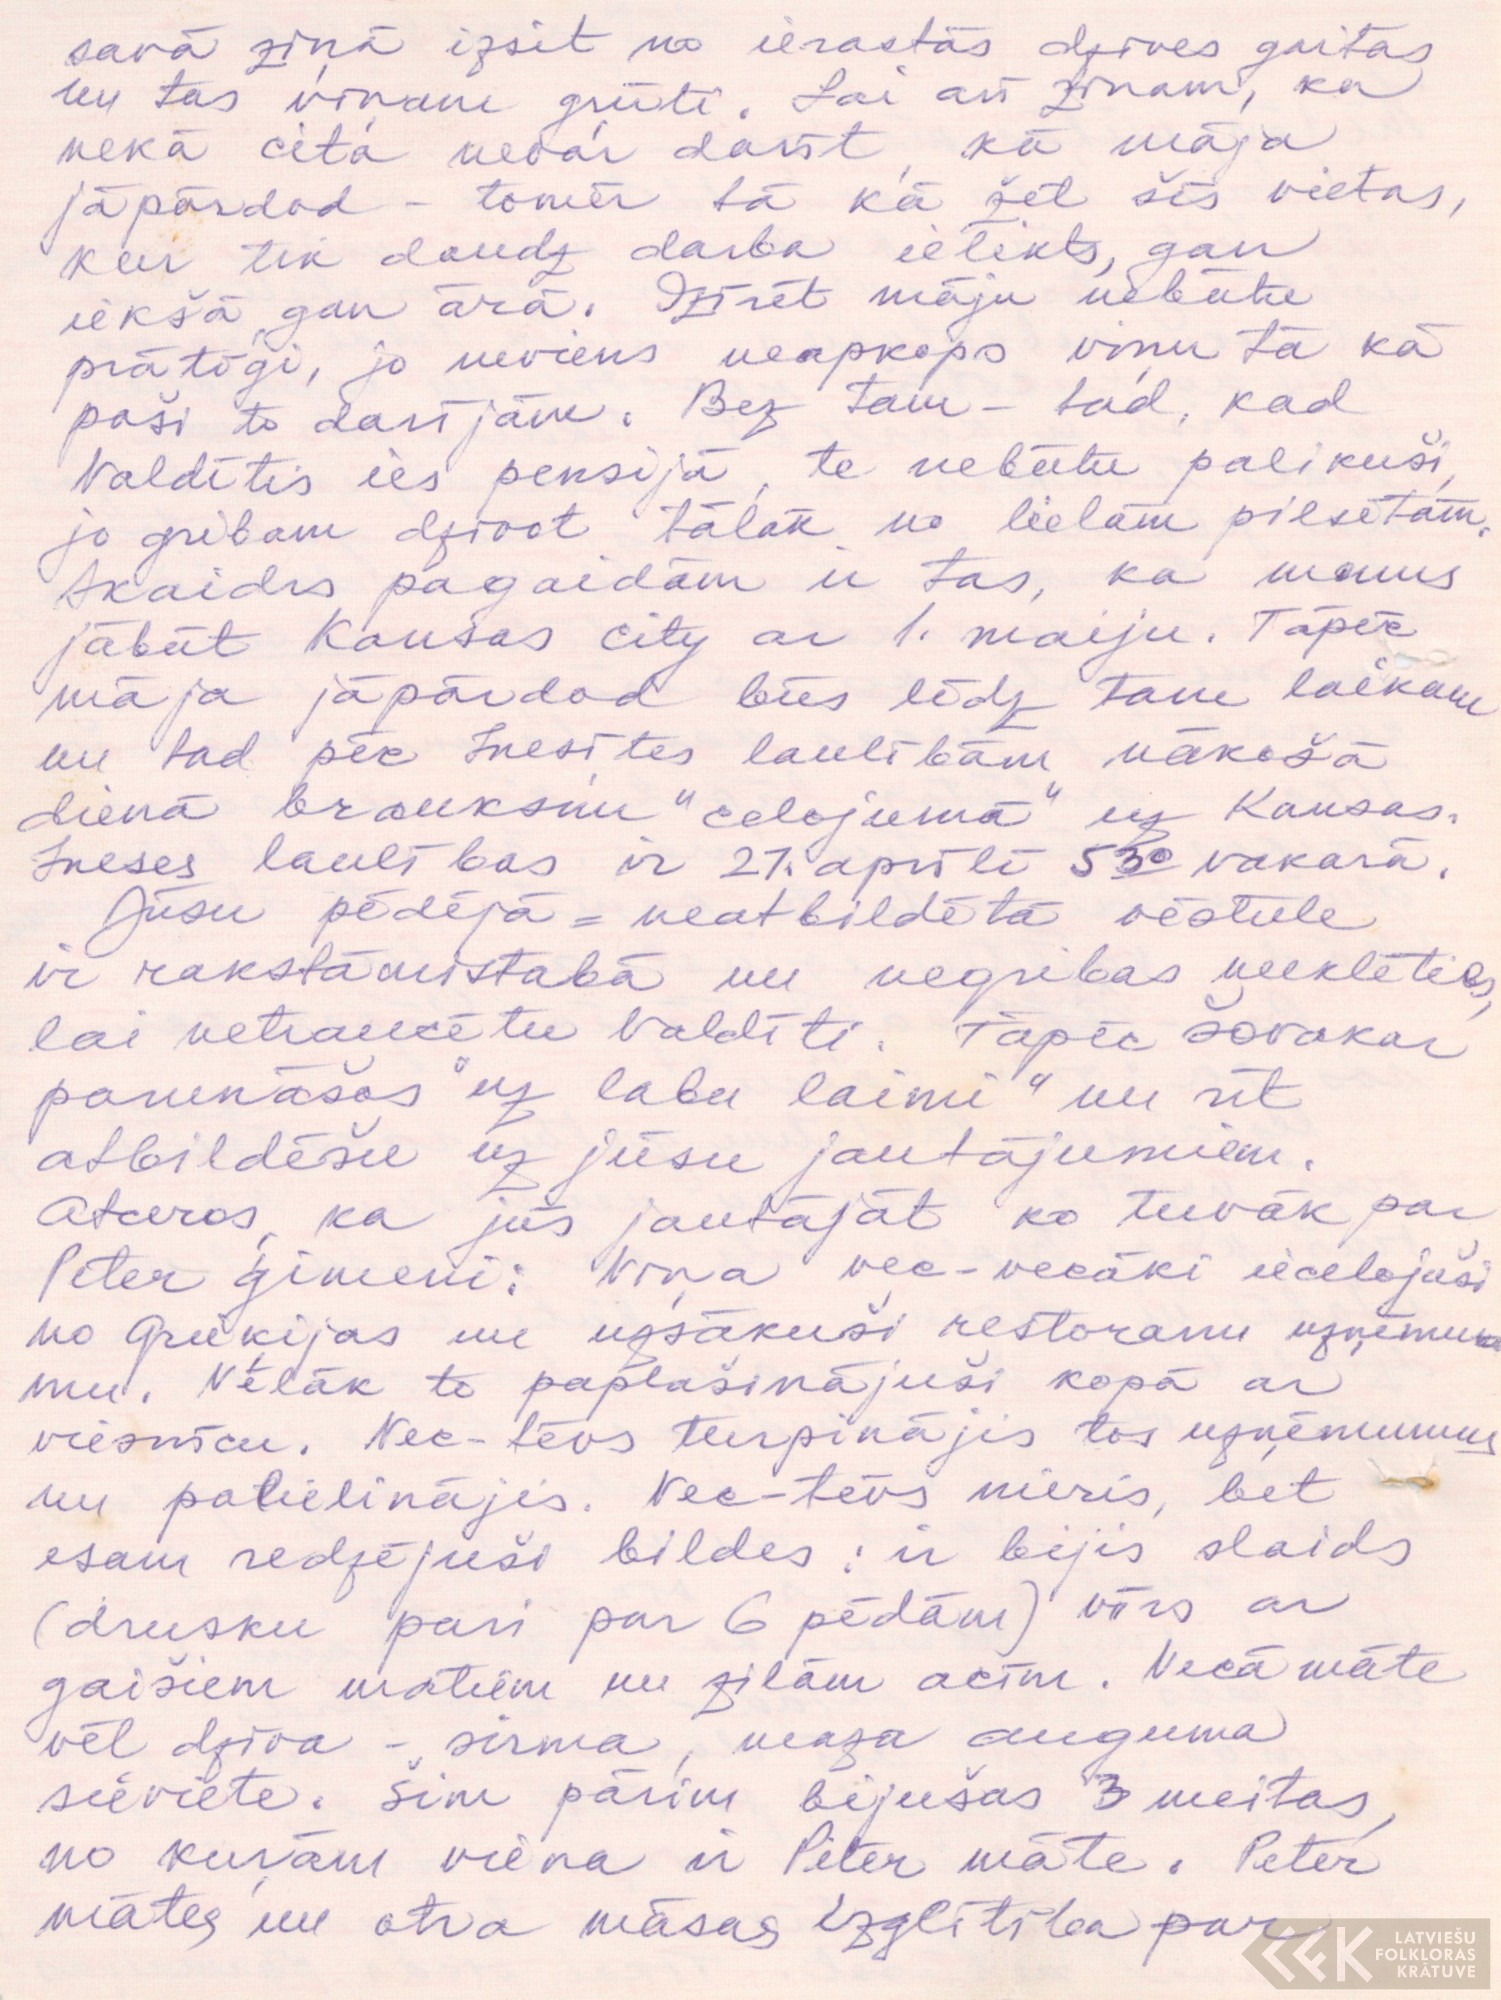 savā ziņā izsit no ierastās dzīves gaitas
un tas viņam grūti. Lai arī zinam, ka
nekā cita nevar darīt, kā māja
jāpārdod - tomēr tā kā žēl šīs vietas,
kur tik daudz darba ielikts, gan
iekšā gan ārā. Izīrēt māju nebūtu
prātīgi, jo neviens neapkops viņu tā kā
paši to darījām. Bez tam - tad, kad
Valdītis ies pensijā, te nebūtu palikuši,
jo gribam dzīvot tālāk no lielām pilsētām.
Skaidrs pagaidām ir tas, ka mums
jābūt Kansas City ar 1. maiju. Tāpēc
māja jāpārdod būs līdz tam laikam
un tad pēc Inesītes laulībām nākošā
dienā brauksim "ceļojumā" uz Kansas.
Ineses laulības ir 27. aprīlī 5 30 vakarā.
Jūsu pēdējā = neatbildētā vēstule
ir rakstāmistabā un negribas meklēties,
lai netraucētu Valdīti. Tāpēc šovakar
parunāšos "uz labu laimi" un rīt
atbildēšu uz jūsu jautājumiem.
Atceros, ka jūs jautājāt ko tuvāk par
Peter ģimeni: Viņa vec-vecāki ieceļojuši
no Grieķijas un uzsākuši restorānu uzņēmu-
mu. Vēlāk to paplašinājuši kopā ar
viesnīcu. Vec-tēvs turpinājis tos uzņēmumus
un palielinājis. Vec-tēvs miris, bet
esam redzējuši bildes: ir bijis slaids
(drusku pāri par 6 pēdām) vīrs ar
gaišiem matiem un zilām acīm. Vecāmāte
vēl dzīva - sirma, maza auguma
sieviete. Šim pārim bijušas 3 meitas,
no kurām viena ir Peter māte. Peter
mātes un otra māsas izglītība par
LATVIEŠU
FOLKLORAS
KRĀTUVE